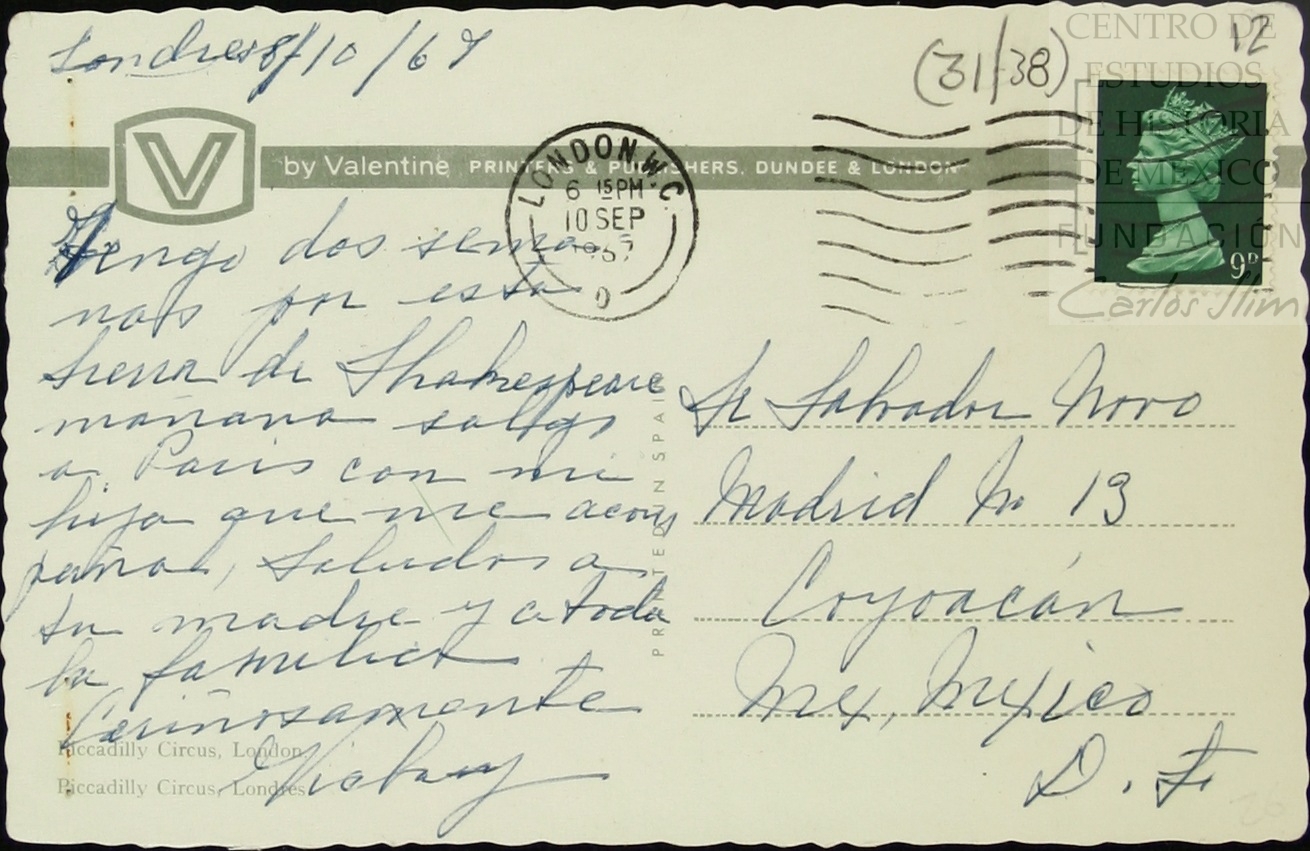 Londres 8/10/67
(31/38)
12
CENTRO DE
ESTUDIOS
DE HISTORIA
DE MEXICO
FUNDACIÓN
Carlos Slim
V
by Valentine PRINTERS & PUBLISHERS, DUNDEE & LONDON
LONDON. W.C.
6 15 PM
10 SEP
1967
D
9D
Tengo dos sema
nas por esta
tierra de Shakespeare
mañana salgo
a Paris con mi
hija que me acom
paña, Saludos a
tu madre y a toda
la familia
Cariñosamente
PRINTED IN SPAIN
Sr Salvador Novo
Madrid No 13
Coyoacán
Mex, Mexico
D. F
Piccadilly Circus, London.
Piccadilly Circus, Londres
26